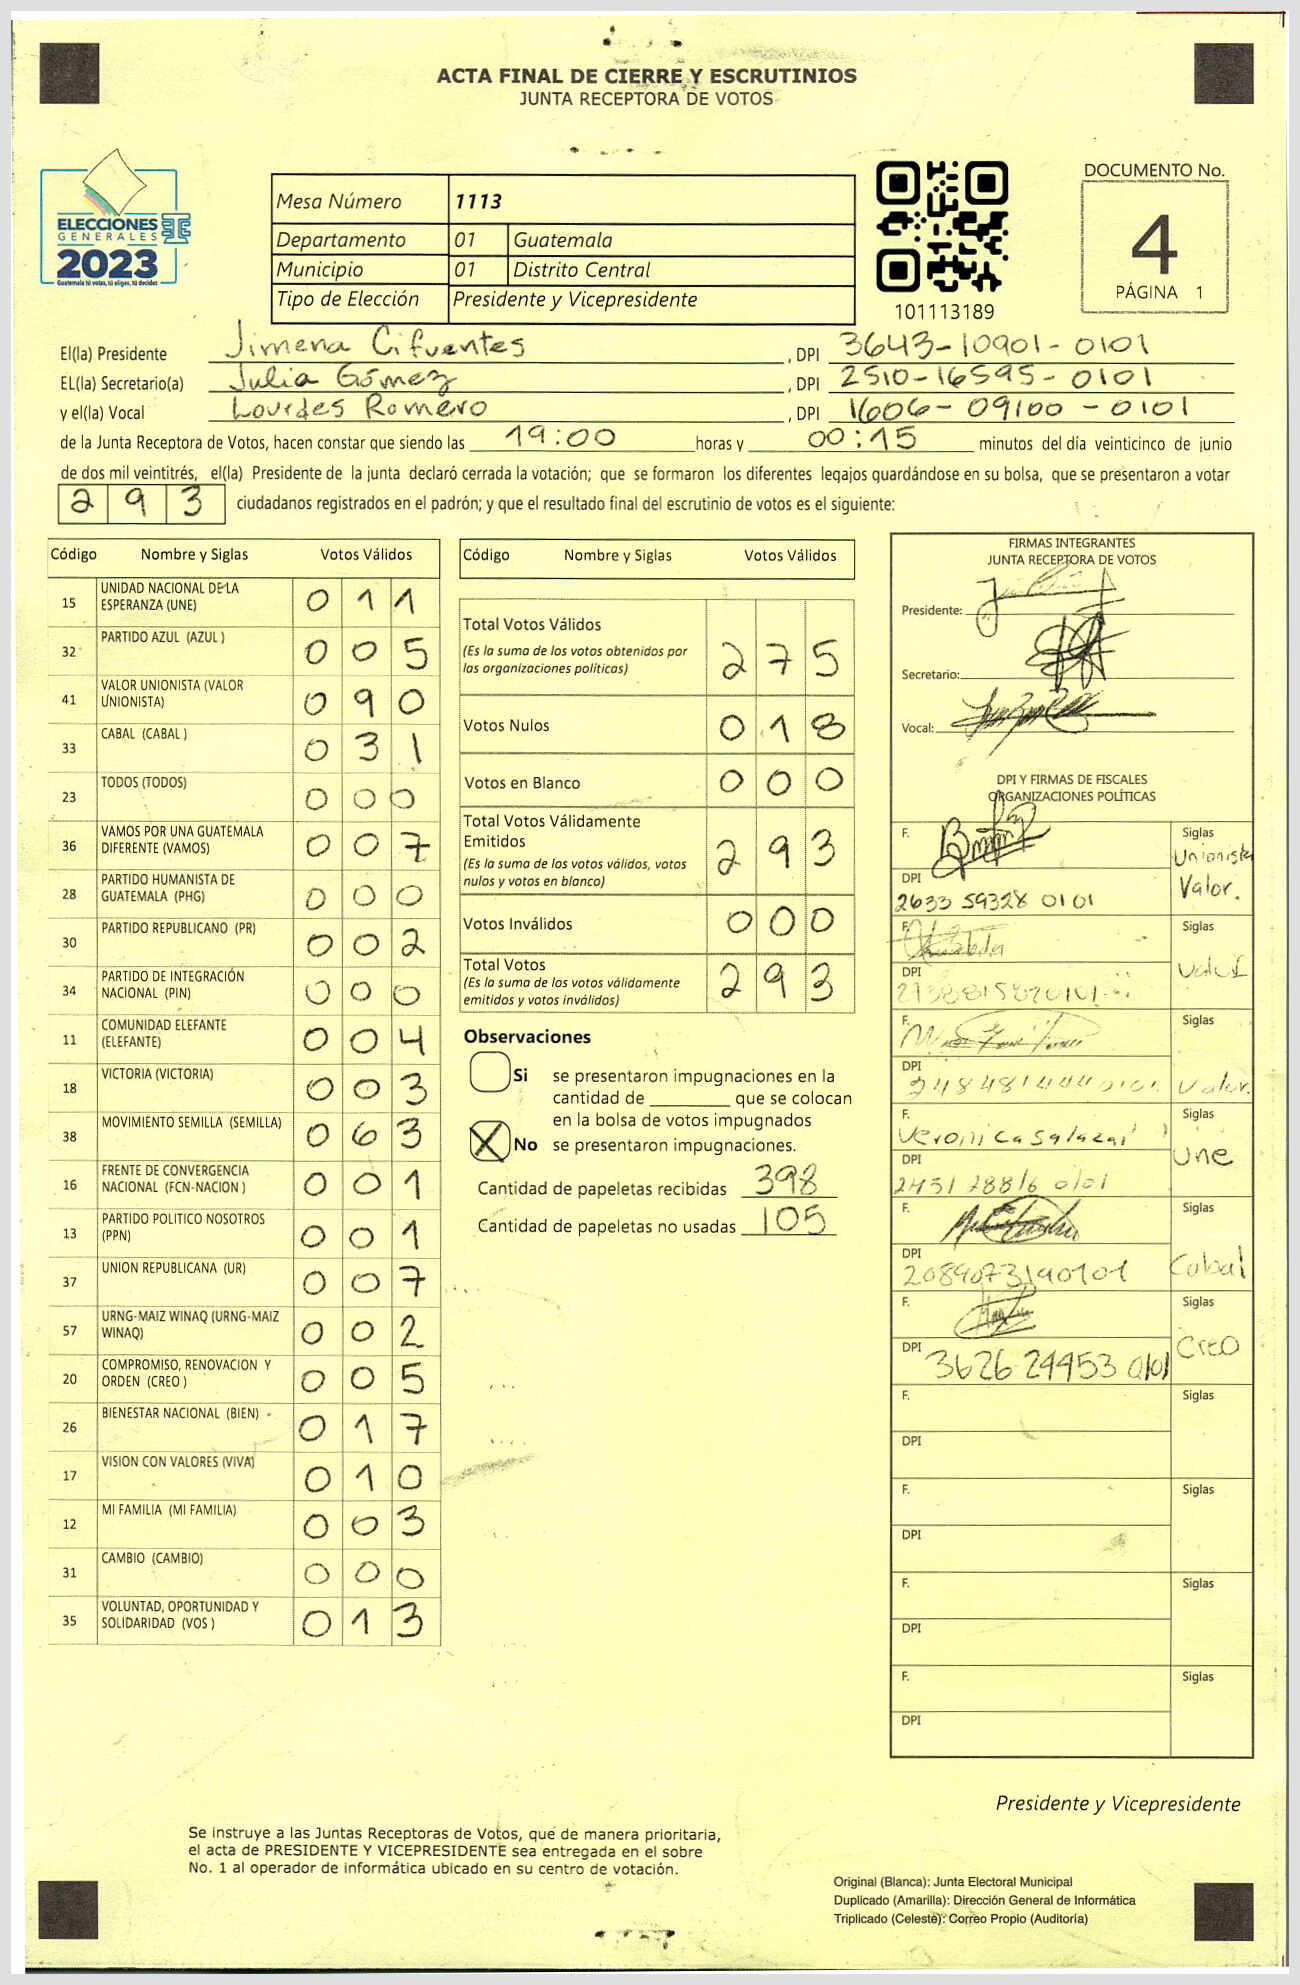 ACTA FINAL DE CIERRE Y ESCRUTINIOS
JUNTA RECEPTORA DE VOTOS
ELECCIONES
GENERALES
2023
Guatemala tú votas, tú eliges, tú decides
Mesa Número 1113
Departamento 01 Guatemala
Municipio 01 Distrito Central
Tipo de Elección Presidente y Vicepresidente
101113189
DOCUMENTO No.
4
PÁGINA 1
El(la) Presidente Jimena Cifuentes , DPI 3643-10901-0101
EL(la) Secretario(a) Julia Gómez , DPI 2510-16595-0101
y el(la) Vocal Lourdes Romero , DPI 1606-09100-0101
de la Junta Receptora de Votos, hacen constar que siendo las 19:00 horas y 00:15 minutos del día veinticinco de junio
de dos mil veintitrés, el(la) Presidente de la junta declaró cerrada la votación; que se formaron los diferentes legajos guardándose en su bolsa, que se presentaron a votar
293 ciudadanos registrados en el padrón; y que el resultado final del escrutinio de votos es el siguiente:
Código Nombre y Siglas Votos Válidos
15 UNIDAD NACIONAL DE LA ESPERANZA (UNE) 011
32 PARTIDO AZUL (AZUL ) 005
41 VALOR UNIONISTA (VALOR UNIONISTA) 090
33 CABAL (CABAL ) 031
23 TODOS (TODOS) 000
36 VAMOS POR UNA GUATEMALA DIFERENTE (VAMOS) 007
28 PARTIDO HUMANISTA DE GUATEMALA (PHG) 000
30 PARTIDO REPUBLICANO (PR) 002
34 PARTIDO DE INTEGRACIÓN NACIONAL (PIN) 000
11 COMUNIDAD ELEFANTE (ELEFANTE) 004
18 VICTORIA (VICTORIA) 003
38 MOVIMIENTO SEMILLA (SEMILLA) 063
16 FRENTE DE CONVERGENCIA NACIONAL (FCN-NACION ) 001
13 PARTIDO POLITICO NOSOTROS (PPN) 001
37 UNION REPUBLICANA (UR) 007
57 URNG-MAIZ WINAQ (URNG-MAIZ WINAQ) 002
20 COMPROMISO, RENOVACION Y ORDEN (CREO ) 005
26 BIENESTAR NACIONAL (BIEN) 017
17 VISION CON VALORES (VIVA) 010
12 MI FAMILIA (MI FAMILIA) 003
31 CAMBIO (CAMBIO) 000
35 VOLUNTAD, OPORTUNIDAD Y SOLIDARIDAD (VOS ) 013
Código Nombre y Siglas Votos Válidos
Total Votos Válidos 275
(Es la suma de los votos obtenidos por
las organizaciones políticas)
Votos Nulos 018
Votos en Blanco 000
Total Votos Válidamente
Emitidos 293
(Es la suma de los votos válidos, votos
nulos y votos en blanco)
Votos Inválidos 000
Total Votos 293
(Es la suma de los votos válidamente
emitidos y votos inválidos)
Observaciones
Si se presentaron impugnaciones en la
cantidad de ________ que se colocan
en la bolsa de votos impugnados
X No se presentaron impugnaciones.
Cantidad de papeletas recibidas 398
Cantidad de papeletas no usadas 105
FIRMAS INTEGRANTES
JUNTA RECEPTORA DE VOTOS
Presidente:
Secretario:
Vocal:
DPI Y FIRMAS DE FISCALES
ORGANIZACIONES POLÍTICAS
F. Siglas Unionista Valor.
DPI 2633 59328 0101
F. Siglas
DPI
F. Siglas Valor.
DPI 2484814440101
F. Veronica Salazar Siglas Une
DPI 2451 28816 0101
F. Siglas Cabal
DPI 2089073190101
F. Siglas CREO
DPI 3626 29453 0101
F. Siglas
DPI
F. Siglas
DPI
F. Siglas
DPI
F. Siglas
DPI
Presidente y Vicepresidente
Se instruye a las Juntas Receptoras de Votos, que de manera prioritaria,
el acta de PRESIDENTE Y VICEPRESIDENTE sea entregada en el sobre
No. 1 al operador de informática ubicado en su centro de votación.
Original (Blanca): Junta Electoral Municipal
Duplicado (Amarilla): Dirección General de Informática
Triplicado (Celeste): Correo Propio (Auditoría)